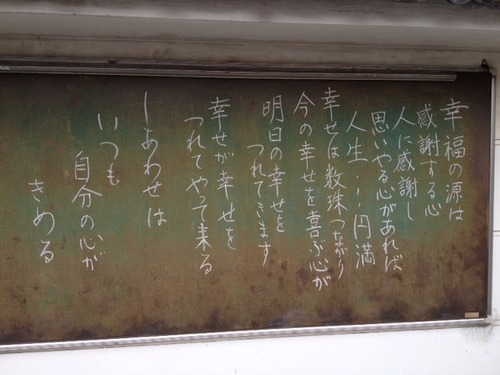 幸福の源は
感謝する心
人に感謝し
思いやる心があれば
人生…円満
幸せは数珠つながり
今の幸せを喜ぶ心が
明日の幸せを
つれてきます
幸せが幸せを
つれてやって来る
しあわせは
いつも
自分の心が
きめる